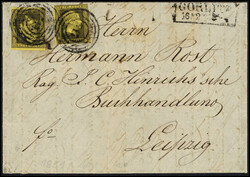 GÖRL
16 12
Herrn
Hermann Rost.
J. C. Hinrichs'sche
Buchhandlung
fr
Leipzig.